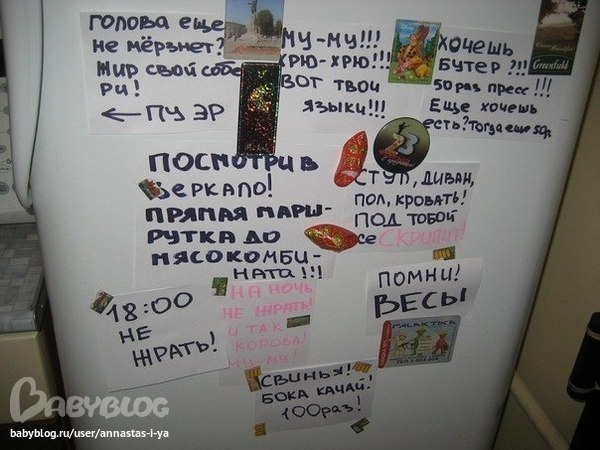 ГОЛОВА ЕЩЕ
НЕ МЁРЗНЕТ?
ЖИР СВОЙ СОБЕ
РИ!
← ПУ ЭР
МУ-МУ!!!
ХРЮ-ХРЮ!!!
ВОТ ТВОИ
ЯЗЫКИ!!!
ХОЧЕШЬ
БУТЕР?!!!
50 РАЗ ПРЕСС!!!
ЕЩЕ ХОЧЕШЬ
ЕСТЬ? ТОГДА ЕЩЕ 50Р.
Greenfield
23
ПОСМОТРИ В
ЗЕРКАЛО!
ПРЯМАЯ МАРШ-
РУТКА ДО
МЯСОКОМБИ-
НАТА!!!
СТУЛ, ДИВАН,
ПОЛ, КРОВАТЬ!
ПОД ТОБОЙ
ВСЕ СКРИПИТ!
18:00
НЕ
ЖРАТЬ!
НА НОЧЬ
НЕ ЖРАТЬ!
И ТАК
КОРОВА!
МУ-МУ!
ПОМНИ!
ВЕСЫ
GALAKTIKA
СВИНЬЯ!
БОКА КАЧАЙ,
100 РАЗ!
BABYBLOG
babyblog.ru/user/annastas-i-ya